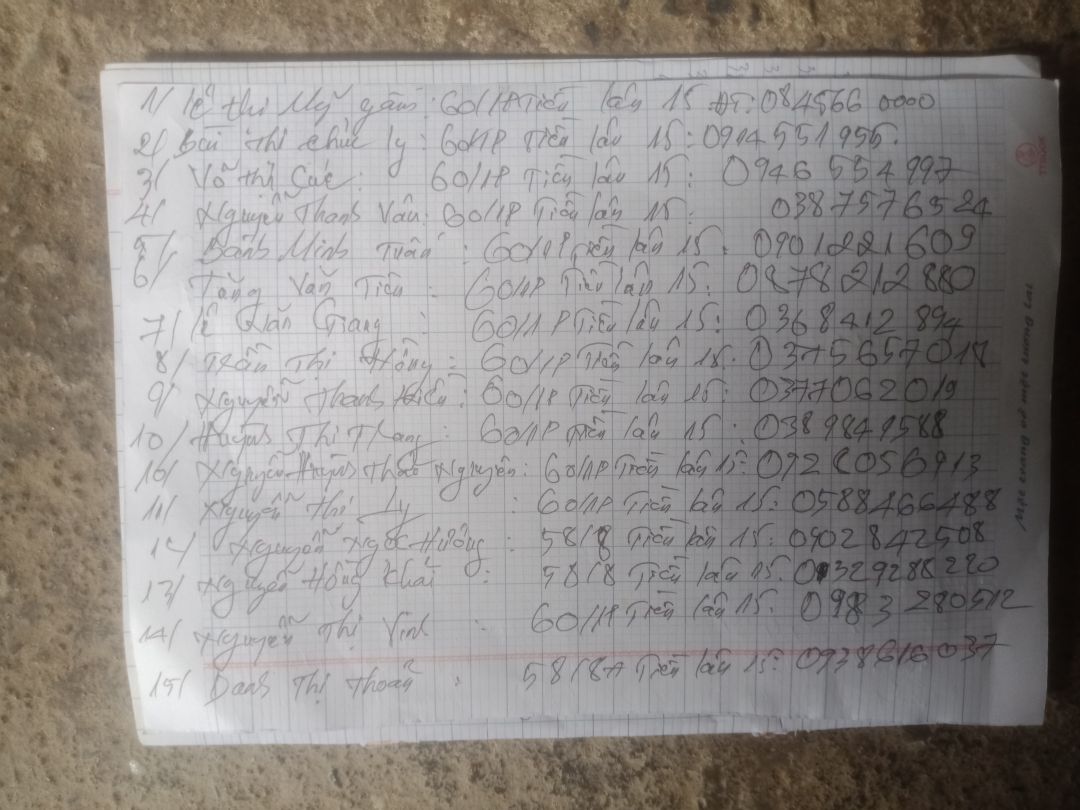 1/ Lê thị Mỹ : 60/1P Tiền lân 15 ĐT: 084566 0000
2/ Bùi Thị chúc ly : 60/1P Tiền lân 15: 0914551955.
3/ Võ thị Cúc : 60/1P Tiền lân 15: 0946 554 997
4/ Nguyễn Thanh Vân: 60/1P Tiền lân 15: 0387576524
5/ Minh Tuấn : 60/1P Tiền lân 15: 0901221609
6/ Tăng Văn Tiên : 60/1P Tiền lân 15: 0878212880
7/ Lê Văn Giang : 60/1P Tiền lân 15: 0368412894
8/ Trần Thị Hồng : 60/1P Tiền lân 15: 0375657017
9/ Nguyễn Thanh : 60/1P Tiền lân 15: 0377062019
10/ Huỳnh Thị Trang : 60/1P Tiền lân 15: 0389849588
10/ Nguyễn Huỳnh Thảo Nguyên: 60/1P Tiền lân 15: 0928056913
11/ Nguyễn Thị Ly : 60/1P Tiền lân 15: 0588466488
12/ Nguyễn Ngọc Hường : 58/8 Tiền lân 15: 0902842508
13/ Nguyễn Hồng Khái : 58/8 Tiền lân 15: 0329288220
14/ Nguyễn Thị Vinh : 60/1P Tiền lân 15: 0983 280512
15/ Danh Thị Thoản : 58/8A Tiền lân 15: 0938616037